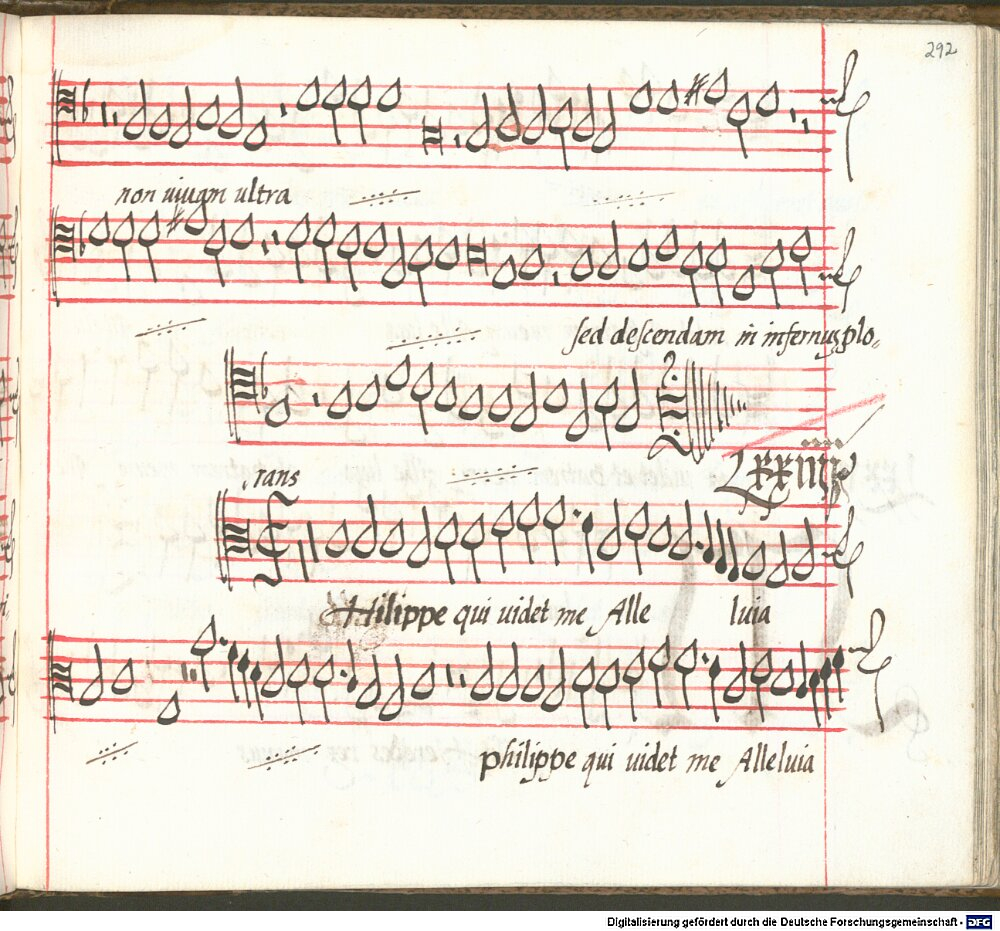 292
non uiuam ultra
sed descendam in infernum plo-
rans
LXXIIII
PHilippe qui uidet me Alle luia
philippe qui uidet me Alleluia
Digitalisierung gefördert durch die Deutsche Forschungsgemeinschaft - DFG